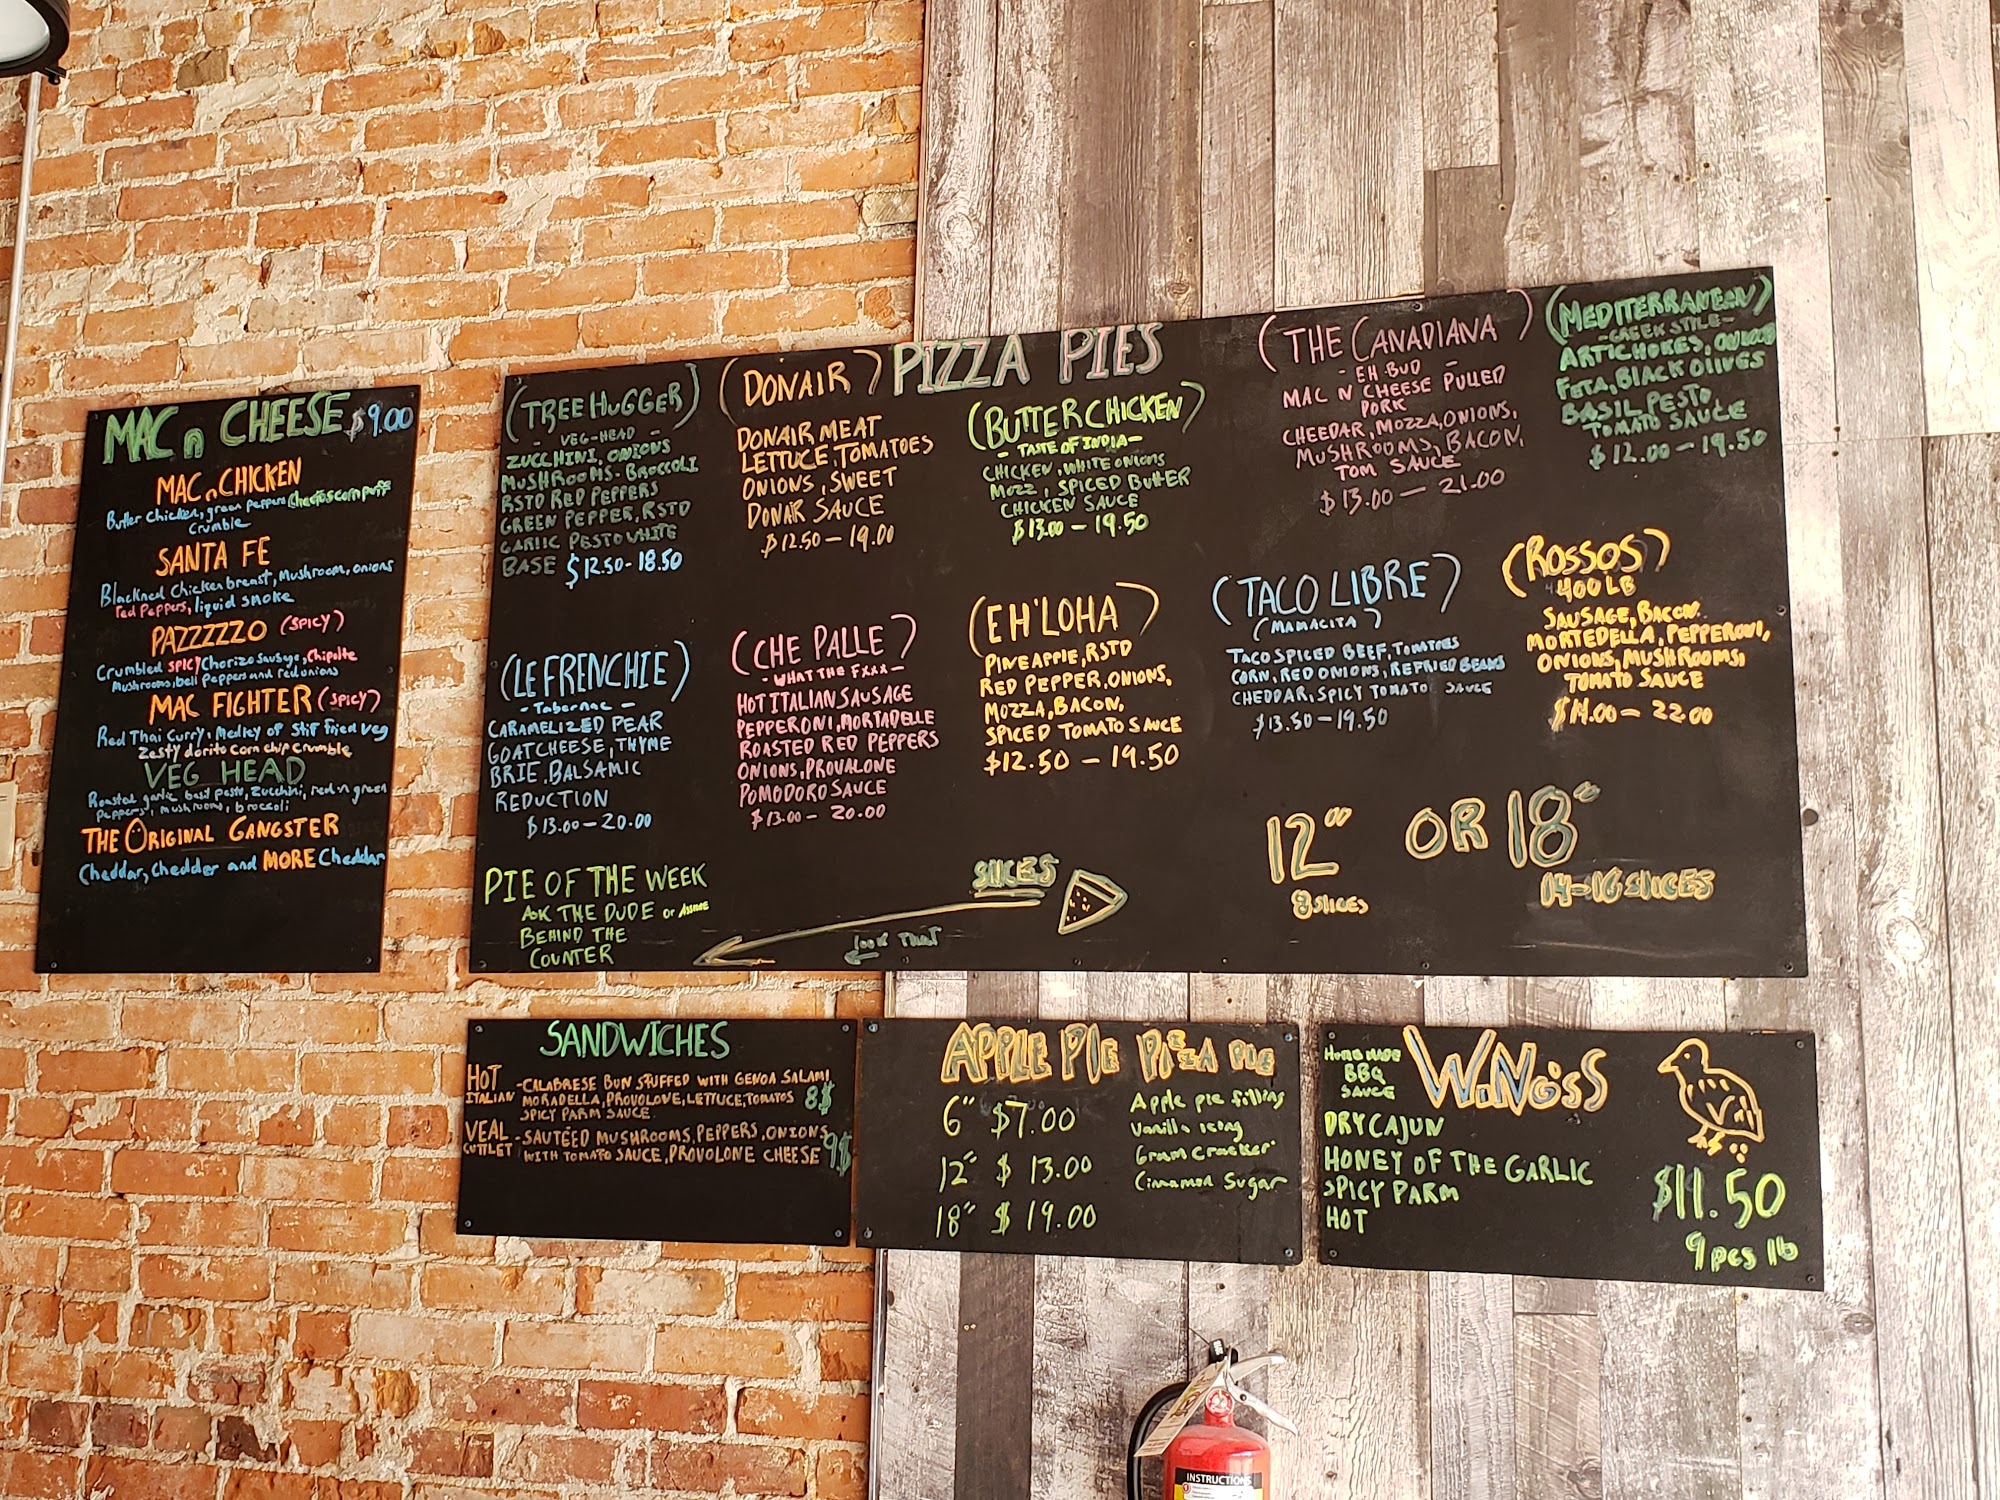 MAC n CHEESE $9.00
MAC n CHICKEN
Butter Chicken, green peppers Cheetos corn puff
Crumble
SANTA FE
Blackned Chicken breast, Mushroom, onions
red Peppers, liquid smoke
PAZZZZZO (SPICY)
Crumbled SPICY Chorizo Sausage, Chipolte
Mushrooms, bell Peppers and red onions
MAC FIGHTER (SPICY)
Red Thai Curry, Medley of Stif fried veg
Zesty dorito corn chip crumble
VEG HEAD
Roasted garlic basil pesto, Zucchini, red n green
peppers, mushrooms, broccoli
THE ORIGINAL GANGSTER
Cheddar, Chedder and MORE Cheddar
PIZZA PIES
(TREE HUGGER)
- VEG-HEAD -
ZUCCHINI, ONIONS
MUSHROOMS. BROCCOLI
RSTD RED PEPPERS
GREEN PEPPER, RSTD
GARLIC PESTO WHITE
BASE $12.50 - 18.50
(DONAIR)
DONAIR MEAT
LETTUCE, TOMATOES
ONIONS, SWEET
DONAIR SAUCE
$12.50 - 19.00
(BUTTER CHICKEN)
- TASTE OF INDIA -
CHICKEN, WHITE ONIONS
MOZZ, SPICED BUTTER
CHICKEN SAUCE
$13.00 - 19.50
(THE CANADIANA)
- EH BUD -
MAC N CHEESE PULLED
PORK
CHEEDAR, MOZZA, ONIONS,
MUSHROOMS, BACON,
TOM SAUCE
$13.00 - 21.00
(MEDITERRANEAN)
- GREEK STILE -
ARTICHOKES,
FETA, BLACK OLIVES
BASIL PESTO,
TOMATO SAUCE
$12.00 - 19.50
(LE FRENCHIE)
- Tabernac -
CARAMELIZED PEAR
GOATCHEESE, THYME
BRIE, BALSAMIC
REDUCTION
$13.00 - 20.00
(CHE PALLE)
- WHAT THE FXXX -
HOT ITALIAN SAUSAGE
PEPPERONI, MORTADELLE
ROASTED RED PEPPERS
ONIONS, PROVALONE
POMODORO SAUCE
$13.00 - 20.00
(EH'LOHA)
PINEAPPLE, RSTD
RED PEPPER, ONIONS,
MOZZA, BACON,
SPICED TOMATO SAUCE
$12.50 - 19.50
(TACO LIBRE)
(MAMACITA)
TACO SPICED BEEF, TOMATOES
CORN, RED ONIONS, REFRIED BEANS
CHEDDAR, SPICY TOMATO SAUCE
$13.50 - 19.50
(ROSSOS)
400 LB
SAUSAGE, BACON.
MORTEDELLA, PEPPERONI,
ONIONS, MUSHROOMS,
TOMATO SAUCE
$14.00 - 22.00
PIE OF THE WEEK
ASK THE DUDE OR
BEHIND THE
COUNTER
SLICES
LOOK THAT
12" OR 18"
8 SLICES
14-16 SLICES
SANDWICHES
HOT ITALIAN - CALABRESE BUN STUFFED WITH GENOA SALAMI
MORADELLA, PROVOLOVE, LETTUCE, TOMATOS 8$
SPICY PARM SAUCE
VEAL CUTTLET - SAUTÉED MUSHROOMS, PEPPERS, ONIONS
WITH TOMATO SAUCE, PROVOLONE CHEESE 9$
APPLE PIE PIZZA PIE
6" $7.00
12" $13.00
18" $19.00
Apple pie filling
Vanilla icing
Gram cracker
Cinnamon Sugar
HOMEMADE
BBQ
SAUCE
WiNGSS
DRY CAJUN
HONEY OF THE GARLIC
SPICY PARM
HOT
$11.50
9 pcs lb
INSTRUCTIONS